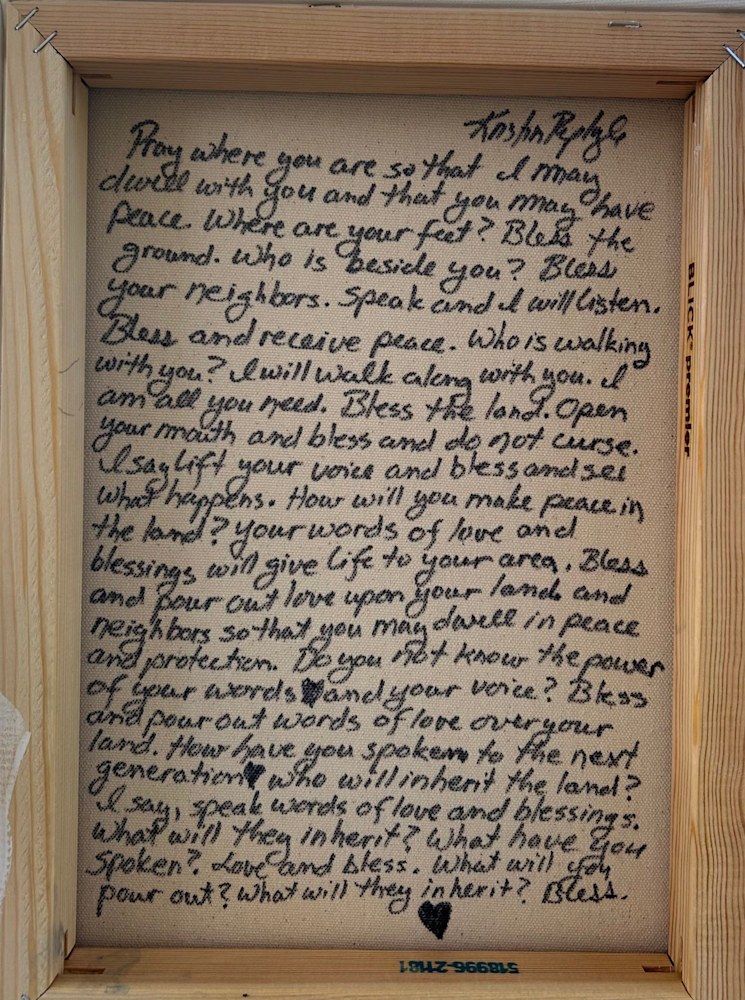 Pray where you are so that I may
dwell with you and that you may have
peace. Where are your feet? Bless the
ground. Who is beside you? Bless
your neighbors. Speak and I will listen.
Bless and receive peace. Who is walking
with you? I will walk along with you. I
am all you need. Bless the land. Open
your mouth and bless and do not curse.
I say lift your voice and bless and see
what happens. How will you make peace in
the land? Your words of love and
blessings will give life to your area. Bless
and pour out love upon your land and
neighbors so that you may dwell in peace
and protection. Do you not know the power
of your words and your voice? Bless
and pour out words of love over your
land. How have you spoken to the next
generation who will inherit the land?
I say, speak words of love and blessings.
What will they inherit? What have you
spoken? Love and bless. What will you
pour out? What will they inherit? Bless.
BLICK premier
518996-21181